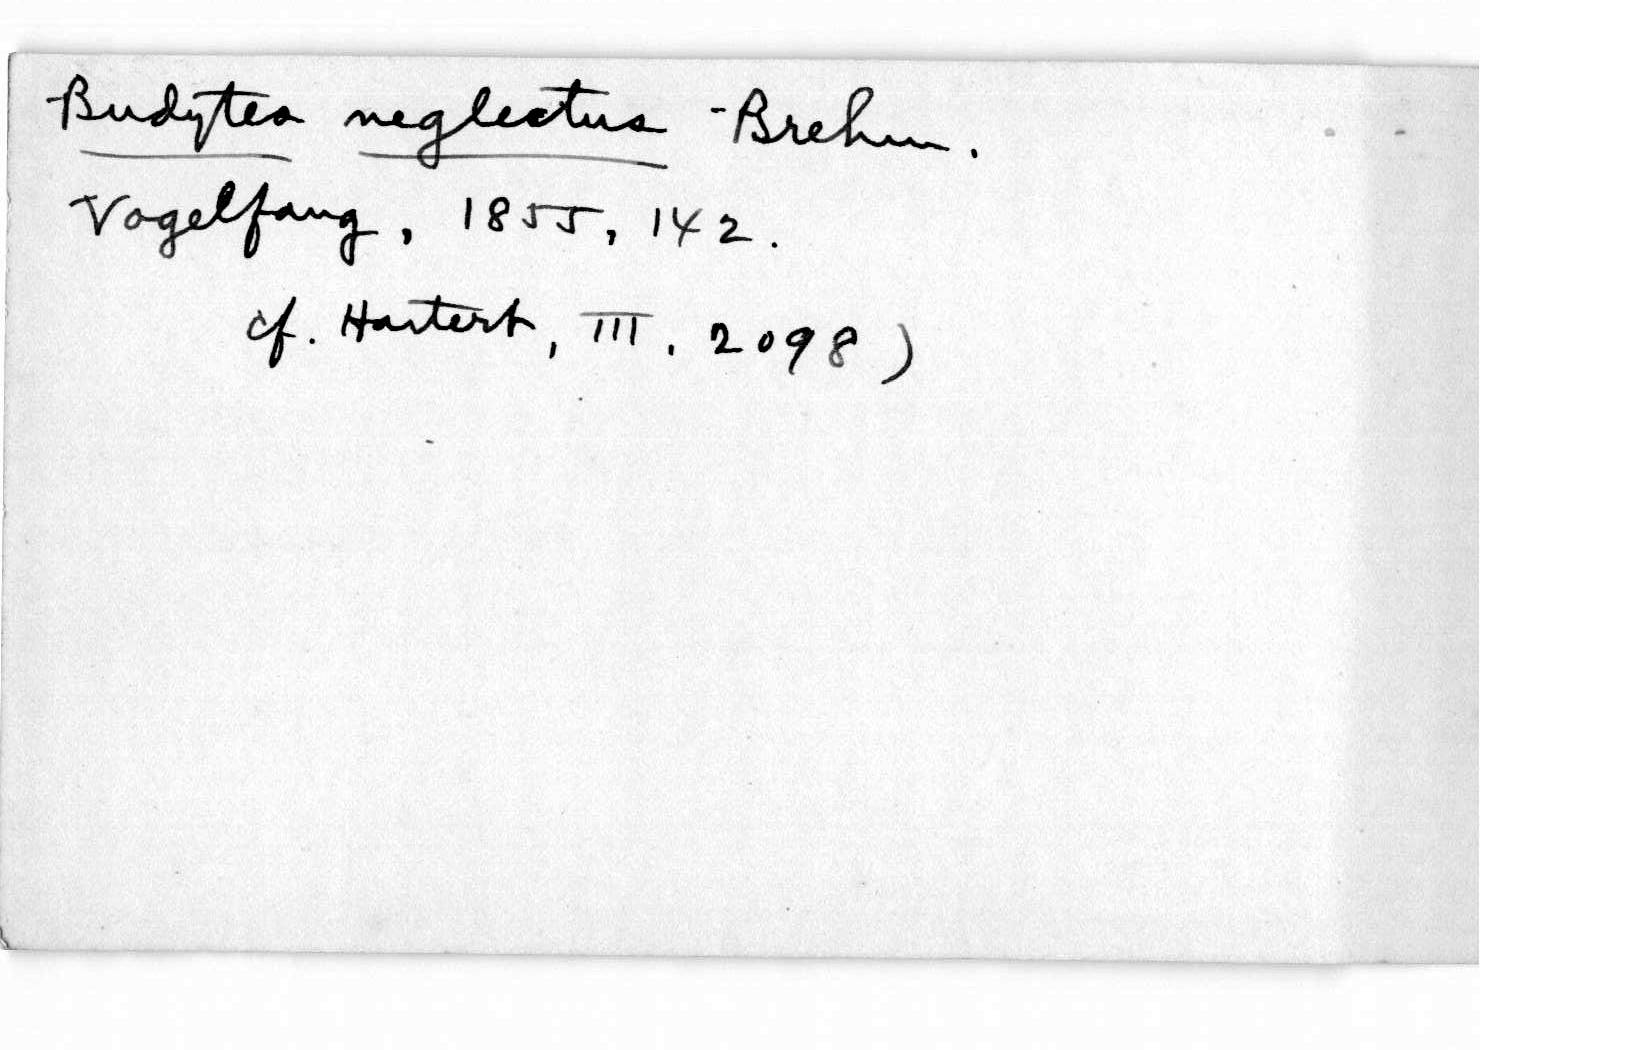 Budytes neglectus Brehm.
Vogelfang, 1855, 142.
cf. Hartert, III. 2098)